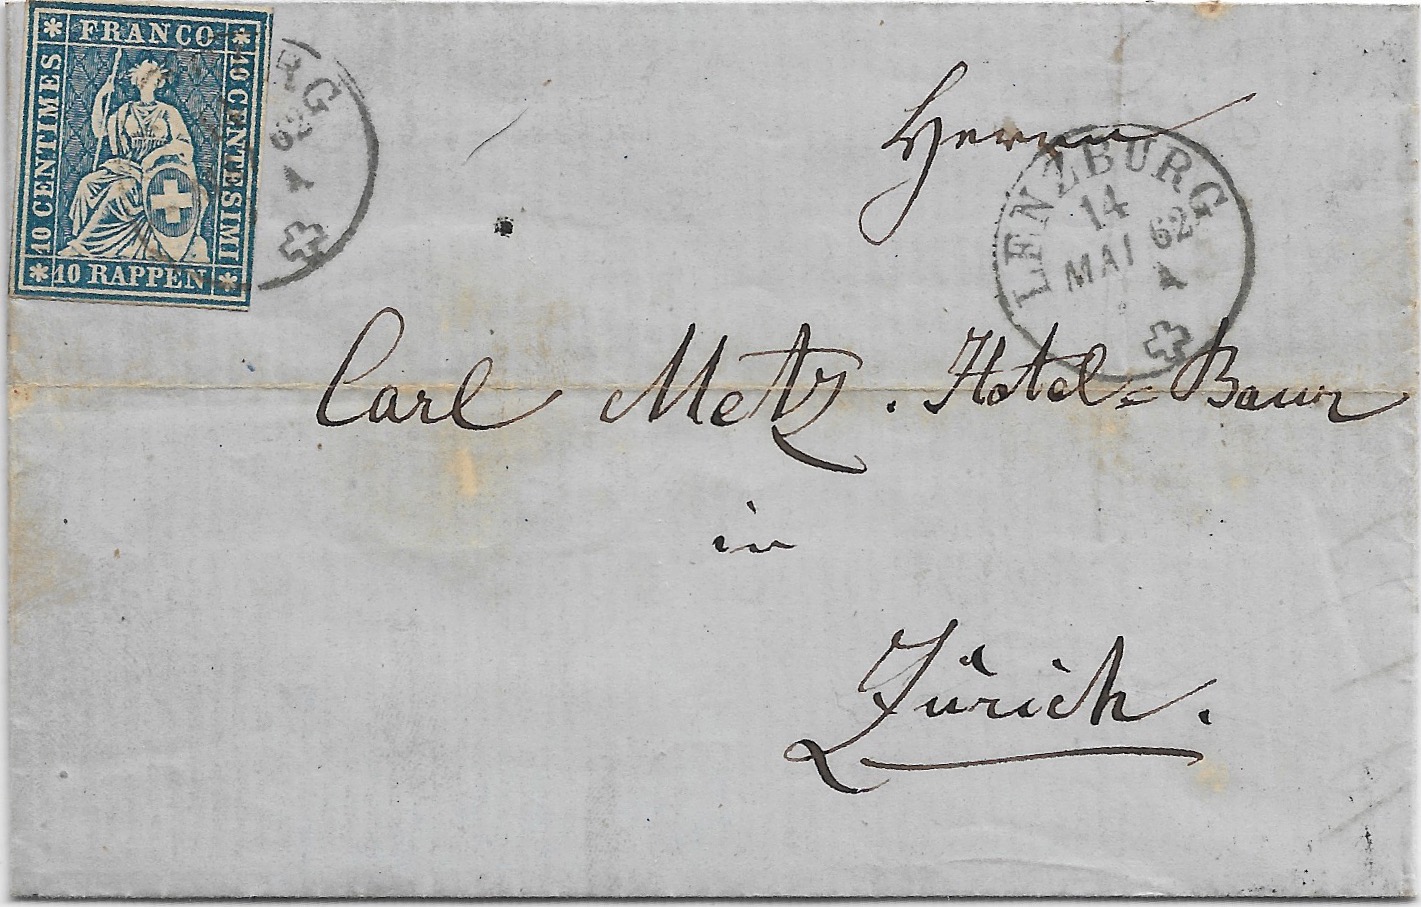 FRANCO
10 CENTIMES
10 CENTESIMI
10 RAPPEN
RG
62
Herrn
LENZBURG
14
MAI 62
Carl Metz. Hotel=Baur
in
Zürich.